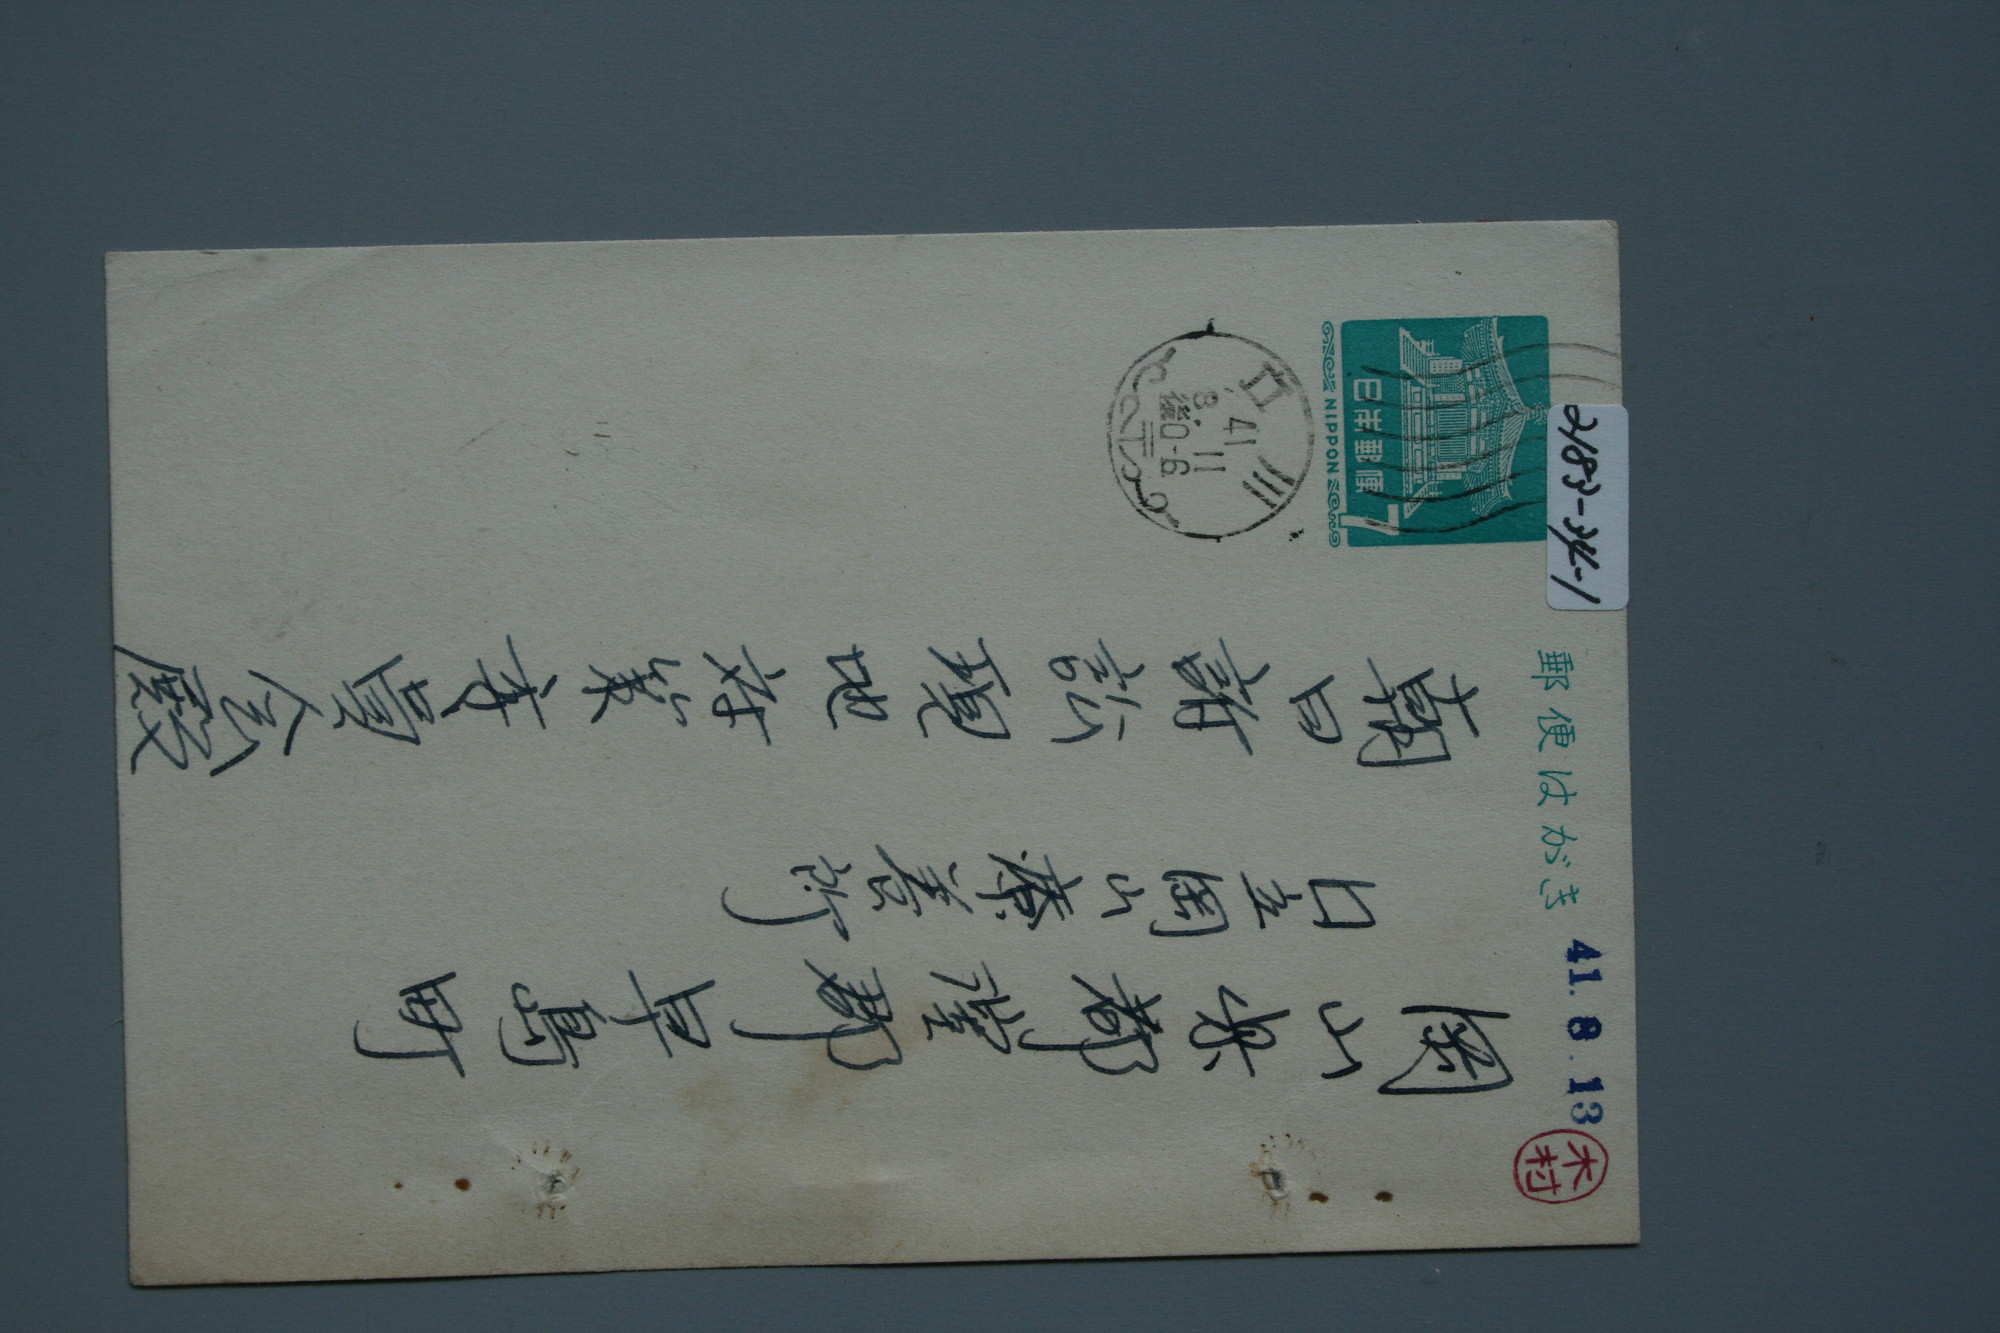 2183-34-1
郵便はがき
41.8.13
木村
日本郵便
7
NIPPON
立川
41
8.11
後0-6
岡山県都窪郡早島町
国立岡山療養所
朝日訴訟現地対策委員会